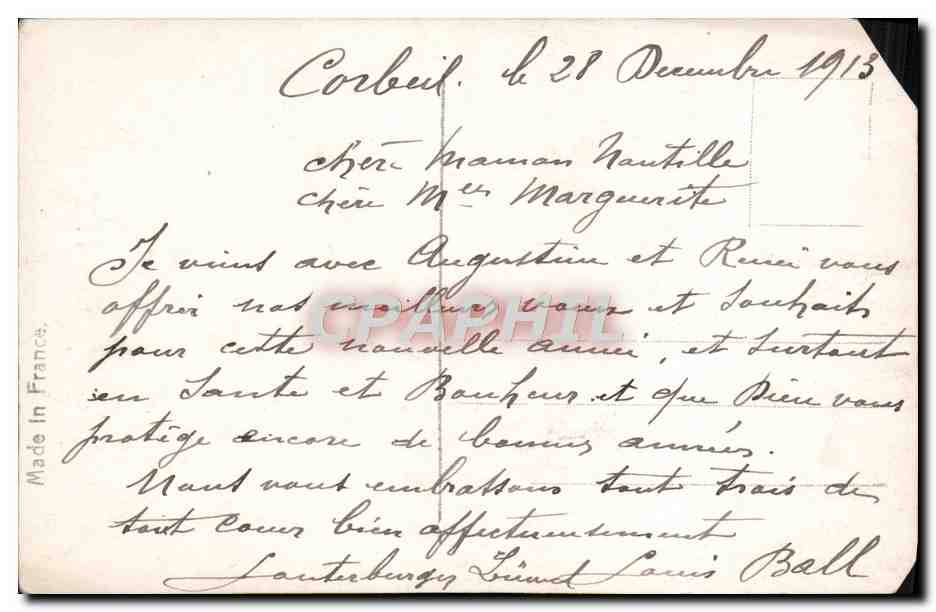 Corbeil. le 28 Decembre 1913
chère Maman Nautille
chère Mlle Marguerite
Je viens avec Augustine et René vous
offrir nos meilleurs vœux et souhaits
pour cette nouvelle année, et surtout
en Sante et Bonheur et que Dieu vous
protège encore de bonnes années.
Nous vous embrassons tout trois de
tout cœur bien affectueusement
Louis Ball
Made In France.
CPAPHIL